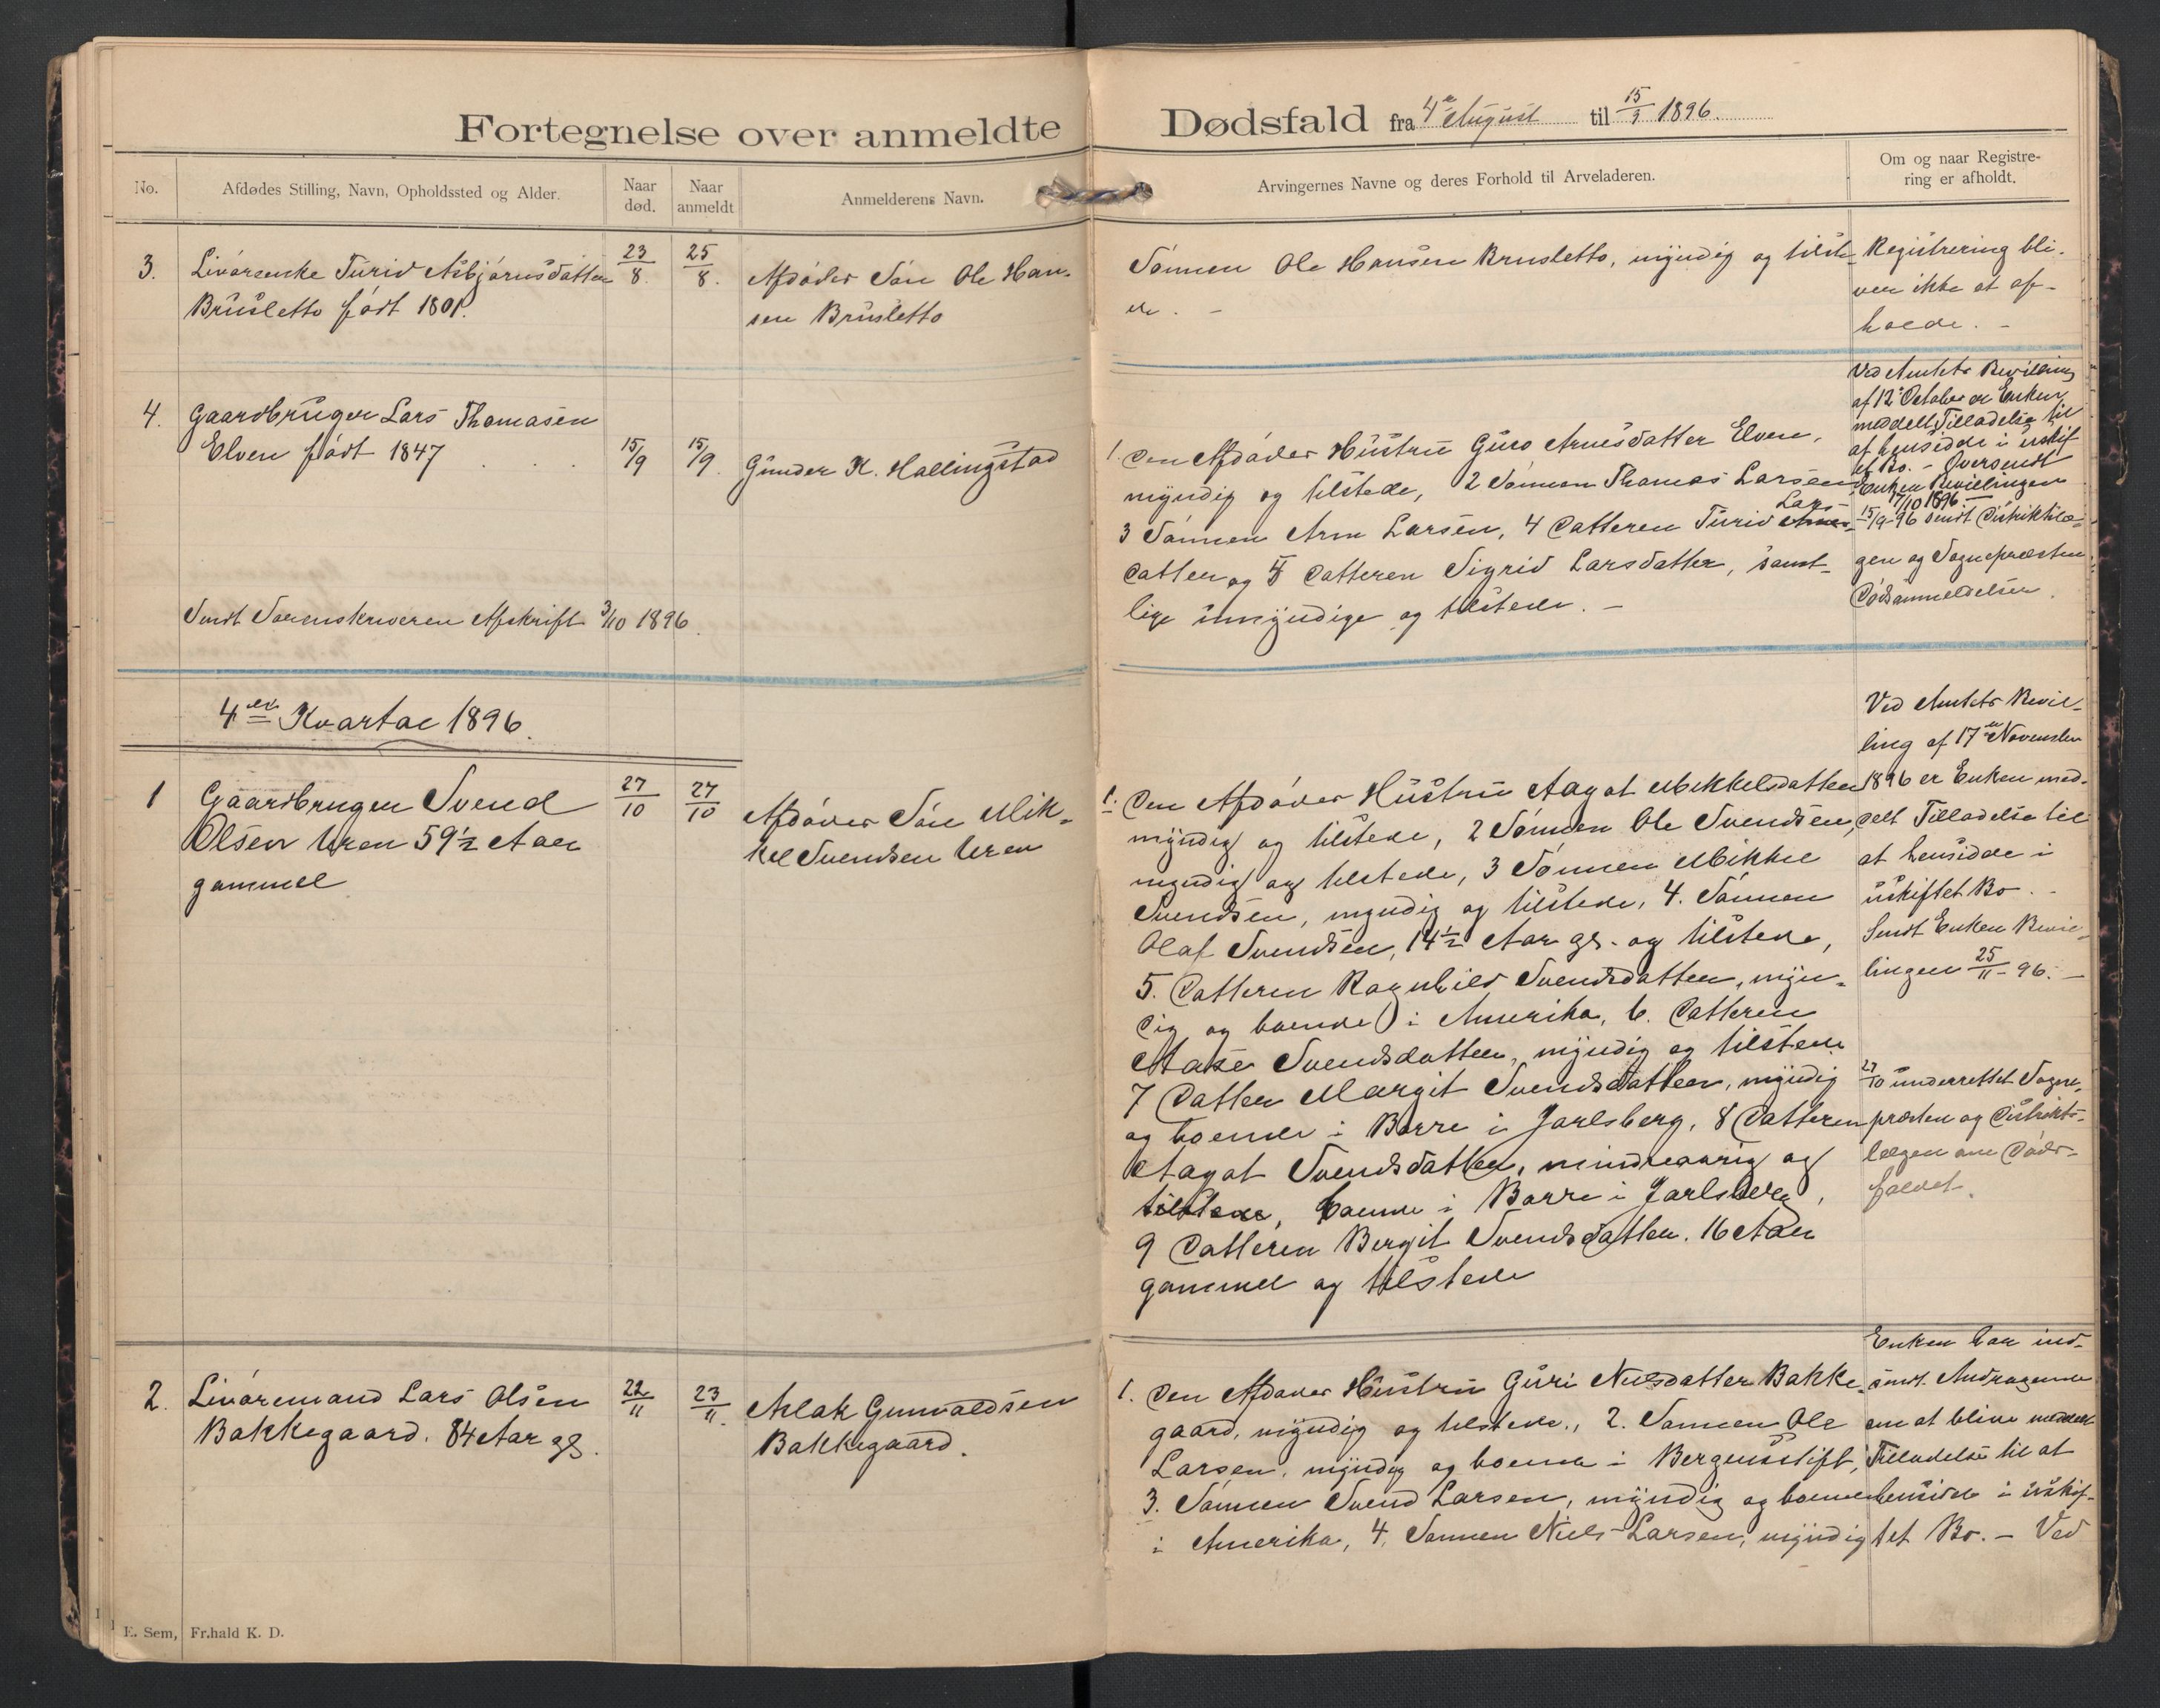 Fortegnelse over anmeldte Dødsfald fra 4de August til 15/9 1896.
No.
Afdødes Stilling, Navn, Opholdssted og Alder.
Naar død.
Naar anmeldt
Anmelderens Navn.
Arvingernes Navne og deres Forhold til Arveladeren.
Om og naar Registre-
ring er afholdt.
3.
Livørenke Turid Asbjørnsdatter
Brusletto født 1801.
23/8.
25/8.
Afdødes Søn Ole Han-
sen Brusletto
Sønnen Ole Hansen Brusletto, myndig og tilste-
de. -
Registrering bli-
ver ikke at af-
holde. -
4.
Gaardbruger Lars Thomasen
Elven født 1847
15/9
15/9.
Gunder K. Hallingstad
Sendt Sorenskriveren Afskrift 3/10 1896.
1. Den Afdødes Hustru Guro Arnesdatter Elven,
myndig og tilstede, 2 Sønnen Thomas Larsen
3 Sønnen Arne Larsen, 4 Datteren Turid Lars-
datter og 5 Datteren Sigrid Larsdatter, samt-
lige umyndige og tilstede. -
Ved Amtets Bevilling
af 12te October er Enken
meddelt Tilladelse til
at hensidde i uskif-
tet Bo. - Oversendt
Enken Bevillingen
17/10 1896 -
15/9-96 sendt Distriktslæ-
gen og Sognepræsten
Dødsanmeldelsen.
4de Kvartal 1896.
1
Gaardbruger Svend
Olsen Uren 59½ Aar
gammel
27/10
27/10
Afdødes Søn Mik-
kel Svendsen Uren
1. Den Afdødes Hustru Aagot Mikkelsdatter
myndig og tilstede, 2 Sønnen Ole Svendsen,
myndig og tilstede, 3 Sønnen Mikkel
Svendsen, myndig og tilstede, 4. Sønnen
Olaf Svendsen, 14½ Aar gl. og tilstede,
5. Datteren Ragnhild Svendsdatter, myn-
dig og boende i Amerika, 6. Datteren
Aase Svendsdatter, myndig og tilstede
7 Datter Margit Svendsdatter, myndig
og boende i Borre i Jarlsberg, 8 Datteren
Aagot Svendsdatter, mindreaarig og
tilstede, boende i Borre i Jarlsberg,
9 Datteren Bergit Svendsdatter. 16 Aar
gammel og tilstede
Ved Amtets Bevil-
ling af 17de November
1896 er Enken med-
delt Tilladelse til
at hensidde i
uskiftet Bo. -
Sendt Enken Bevil-
lingen 25/11-96. -
27/10 underrettet Sogne-
præsten og Distrikts-
lægen om Døds-
faldet.
2.
Livøremand Lars Olsen
Bakkegaard. 84 Aar gl.
22/11
23/11.
Aslak Gunvaldsen
Bakkegaard.
1. Den Afdødes Hustru Guri Nilsdatter Bakke-
gaard, myndig og tilstede., 2. Sønnen Ole
Larsen, myndig og boende i Bergensstift,
3. Sønnen Svend Larsen, myndig og boende
i Amerika, 4. Sønnen Niels Larsen, myndig
Enken har ind-
sendt Andragende
om at blive meddelt
Tilladelse til at
hensidde i uskif-
tet Bo. - Ved
E. Sem, Fr.hald K. D.